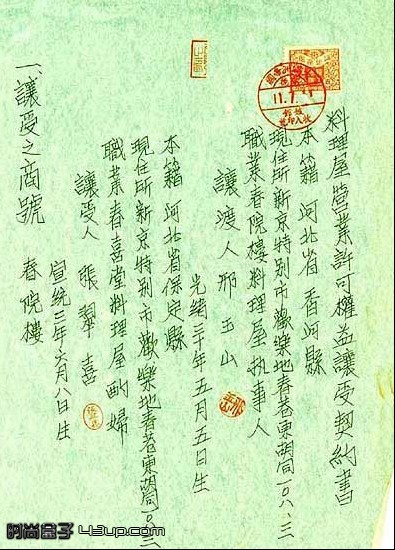 料理屋營業許可權益讓受契約書
本籍 河北省香河縣
現住所新京特別市歡樂地春巷東胡同一〇八、三
職業春院樓料理屋执事人
讓渡人邢玉山
光緒三十年五月五日生
本籍 河北省保定縣
現住所新京特別市歡樂地春巷東胡同一〇
職業春喜堂料理屋酌婦
讓受人 張翠喜
宣統三年六月八日生
一、讓受之商號 春院樓
11.7.
时尚盒子 43up.com